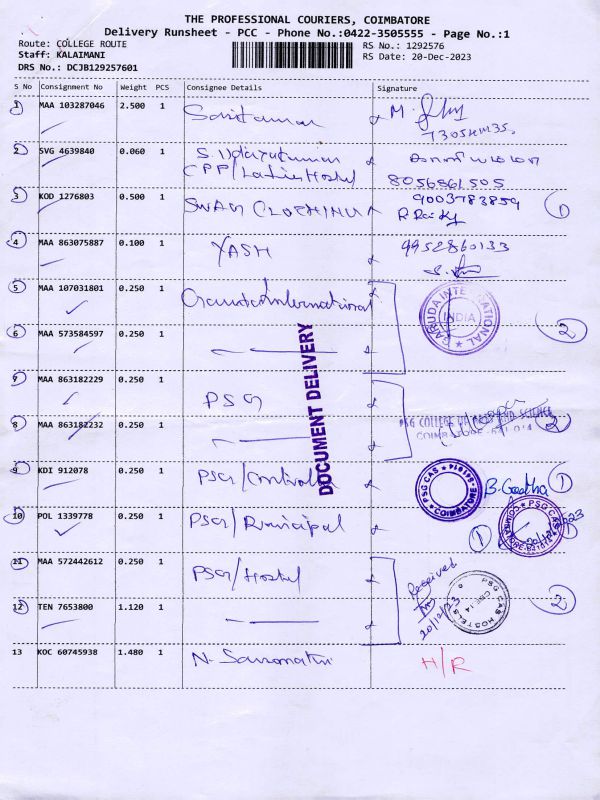 THE PROFESSIONAL COURIERS, COIMBATORE
Delivery Runsheet - PCC - Phone No.:0422-3505555 - Page No.:1
Route: COLLEGE ROUTE
RS No.: 1292576
Staff: KALAIMANI
RS Date: 20-Dec-2023
DRS No.: DCJB129257601
S No Consignment No Weight PCS Consignee Details Signature
1 MAA 103287046 2.500 1 M.
2 SVG 4639840 0.060 1 S. Udayakumar
CPP/Ladies Hostel
8056861505
3 KOD 1276803 0.500 1 SWAG 9003783859 1
4 MAA 863075887 0.100 1 YASH 9952860133
5 MAA 107031801 0.250 1 International
GARUDA INTERNATIONAL INDIA
2
6 MAA 573584597 0.250 1
DOCUMENT DELIVERY
7 MAA 863182229 0.250 1 PSG
PSG COLLEGE OF ARTS AND SCIENCE
COIMBATORE - 641 014
2
8 MAA 863182232 0.250 1
9 KDI 912078 0.250 1 PSG/Controller B. Geetha 1
PSG CAS COIMBATORE 641014
10 POL 1339778 0.250 1 PSG/Principal 1
PSG CAS COIMBATORE-641014
11 MAA 572442612 0.250 1 PSG/Hostel Received
20/12/23
PSG CAS HOSTELS CBE 14
2
12 TEN 7653800 1.120 1
13 KOC 60745938 1.480 1 N. H/R